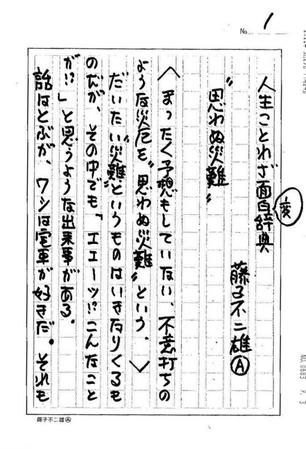 No. 1
人生ことわざ面白辞典
変
藤子不二雄Ⓐ
“思わぬ災難”
〈まったく予想もしていない、不意打ちの
ような災厄を“思わぬ災難”という。〉
だいたい“災難”というものはいきなりくるも
のだが、その中でも「エエーッ!こんなこと
が!?」と思うような出来事がある。
話はとぶが、ワシは電車が好きだ。それも
藤子不二雄Ⓐ